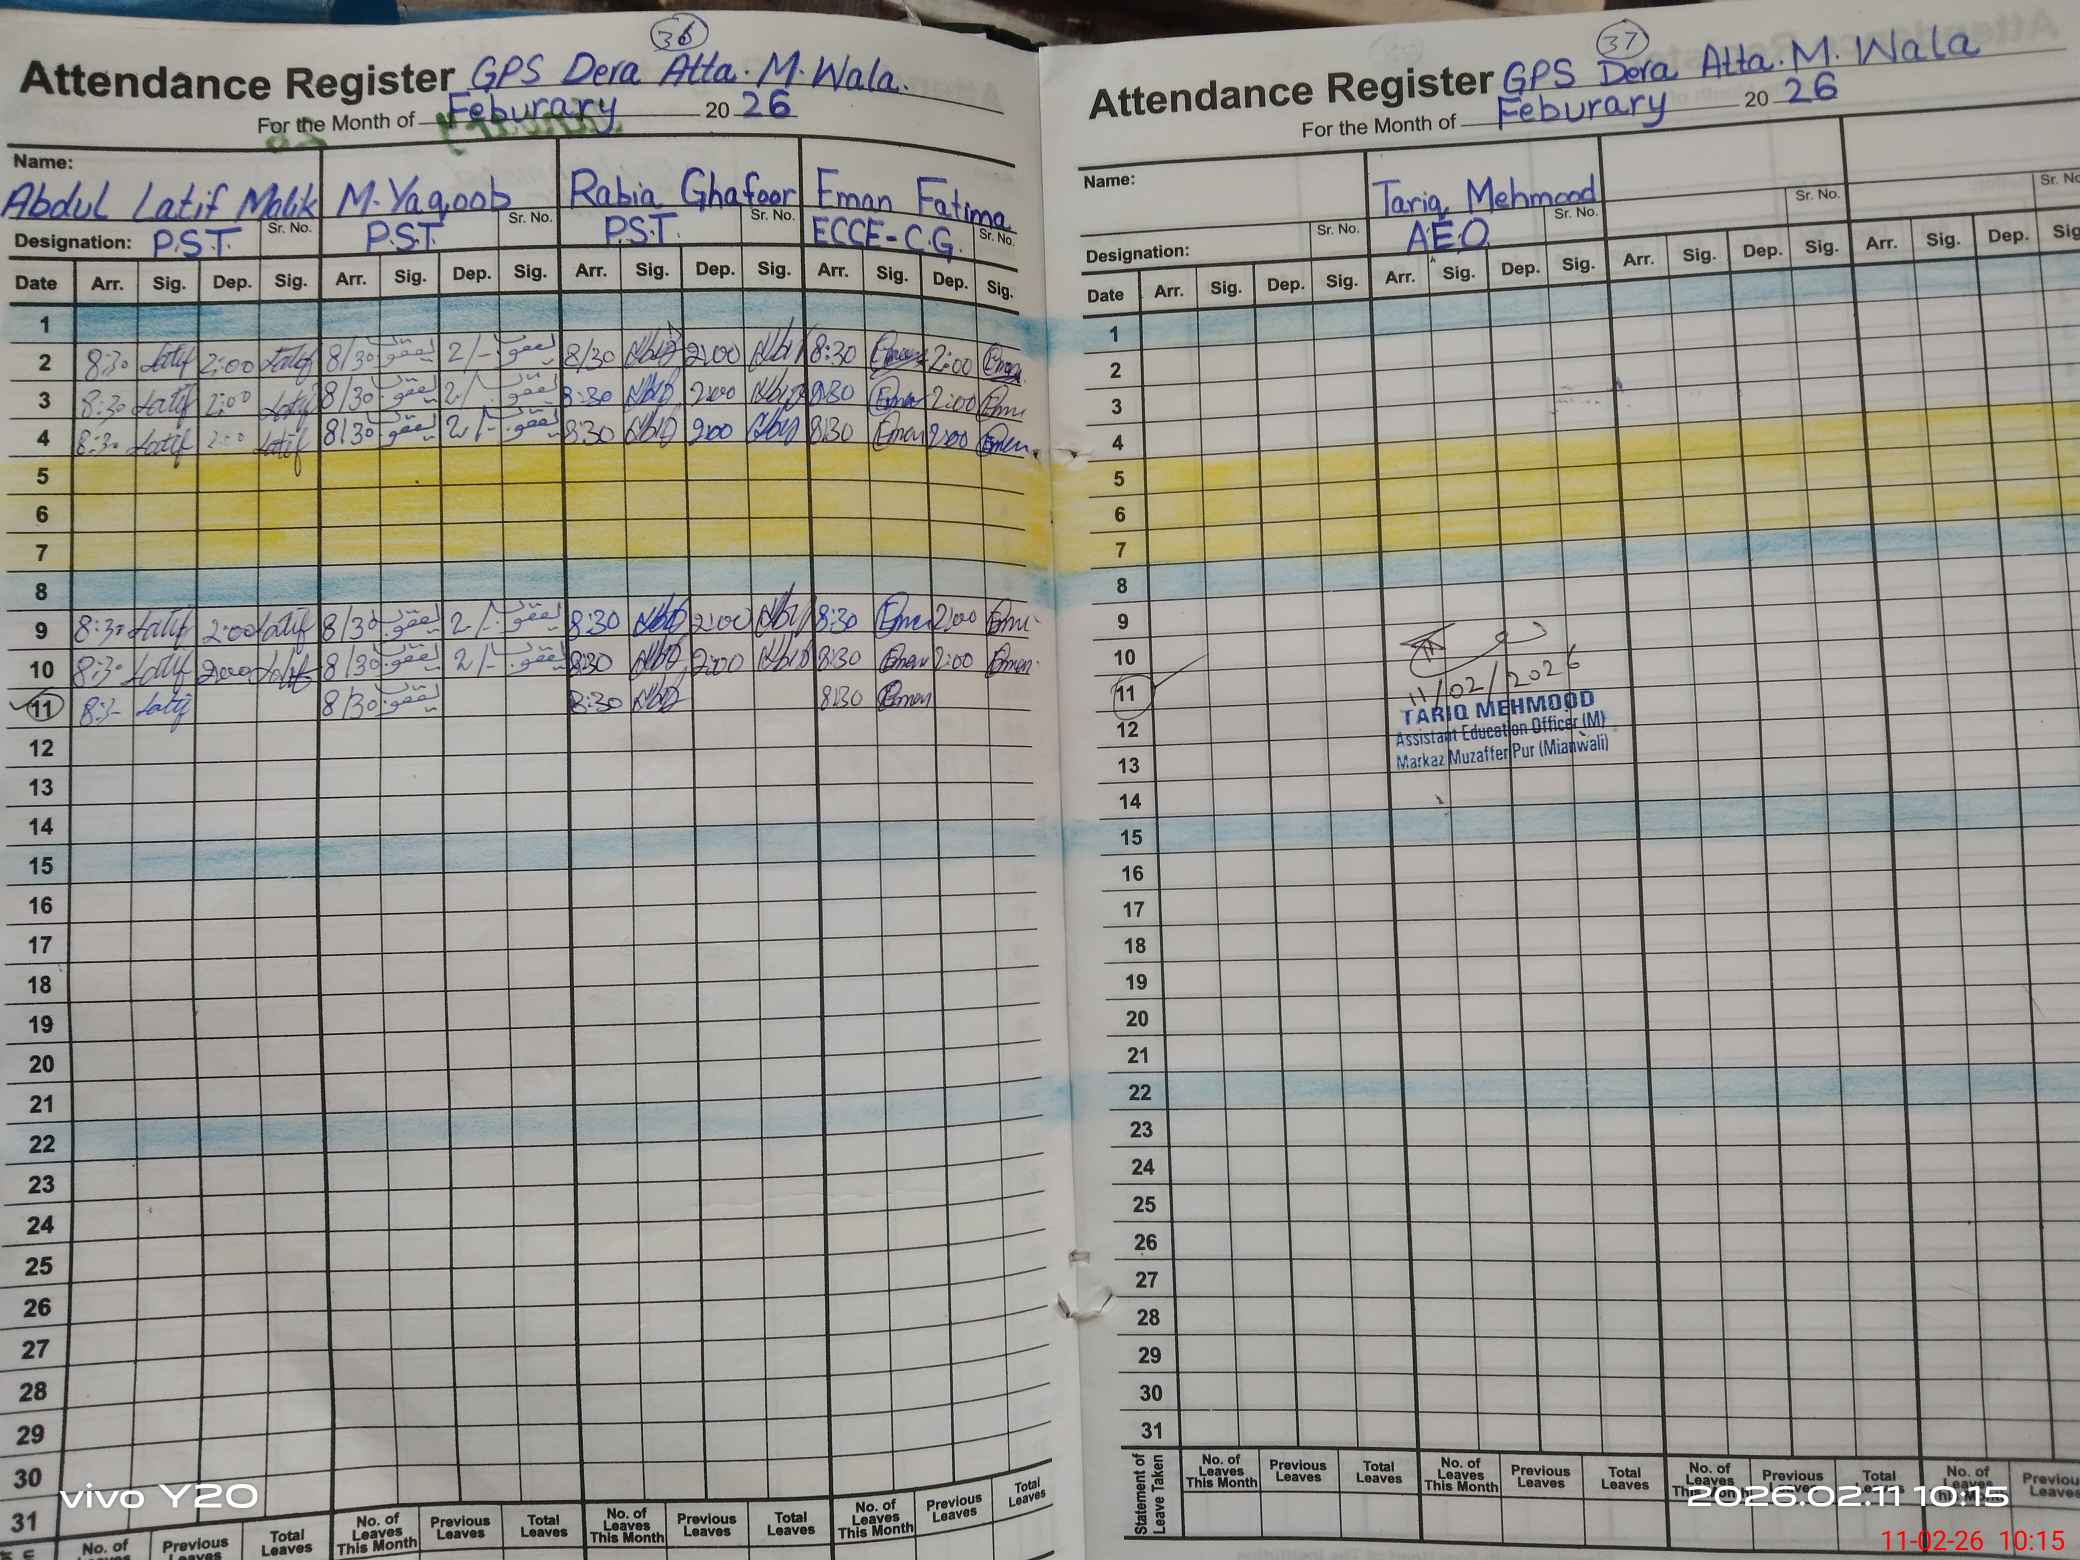 36
Attendance Register GPS Dera Atta. M. Wala.
For the Month of Feburary 20 26
Name:
Abdul Latif Malik M. Yaqoob Rabia Ghafoor Eman Fatima
Designation: P.S.T. Sr. No. P.S.T. Sr. No. P.S.T. Sr. No. ECCE-C.G. Sr. No.
Date Arr. Sig. Dep. Sig. Arr. Sig. Dep. Sig. Arr. Sig. Dep. Sig. Arr. Sig. Dep. Sig.
1
2 8:30 Latif 2:00 Latif 8/30 یعقوب 2/- یعقوب 8/30 2:00 8:30 Eman 2:00 Eman
3 8:30 Latif 2:00 Latif 8/30 یعقوب 2/- یعقوب 8:30 2:00 8:30 Eman 2:00 Eman
4 8:30 Latif 2:00 Latif 8/30 یعقوب 2/- یعقوب 8:30 2:00 8:30 Eman 2:00 Eman
5
6
7
8
9 8:30 Latif 2:00 Latif 8/30 یعقوب 2/- یعقوب 8:30 2:00 8:30 Eman 2:00 Eman
10 8:30 Latif 2:00 Latif 8/30 یعقوب 2/- یعقوب 8:30 2:00 8:30 Eman 2:00 Eman
11 8:3- Latif 8/30 یعقوب 8:30 8:30 Eman
12
13
14
15
16
17
18
19
20
21
22
23
24
25
26
27
28
29
30
31
No. of Leaves Previous Leaves Total Leaves No. of Leaves This Month Previous Leaves Total Leaves No. of Leaves This Month Previous Leaves Total Leaves No. of Leaves This Month Previous Leaves Total Leaves
vivo Y20
37
Attendance Register GPS Dera Atta. M. Wala
For the Month of Feburary 20 26
Name: Tariq Mehmood
Designation: Sr. No. AEO Sr. No. Sr. No. Sr. No.
Date Arr. Sig. Dep. Sig. Arr. Sig. Dep. Sig. Arr. Sig. Dep. Sig. Arr. Sig. Dep. Sig
1
2
3
4
5
6
7
8
9
10
11 11/02/2026
TARIQ MEHMOOD
12
Assistant Education Officer (M)
13
Markaz Muzaffer Pur (Mianwali)
14
15
16
17
18
19
20
21
22
23
24
25
26
27
28
29
30
31
Statement of Leave Taken No. of Leaves This Month Previous Leaves Total Leaves No. of Leaves This Month Previous Leaves Total Leaves No. of Leaves This Month Previous Leaves Total No. of Leaves This Month Previous
2026.02.11 10:15
11-02-26 10:15